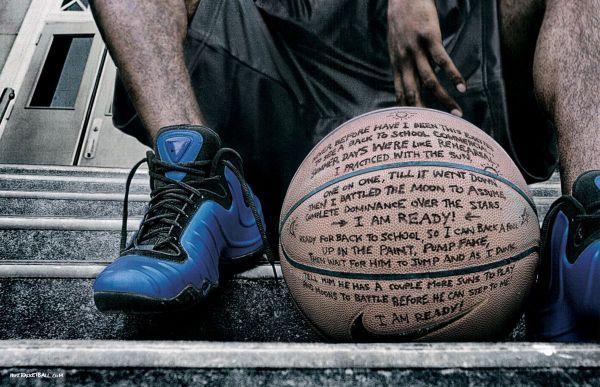 BEFORE HAVE I BEEN THIS
BACK TO SCHOOL
SUMMER DAYS WERE LIKE REHEARSAL
I PRACTICED WITH THE SUN
ONE ON ONE, TILL IT WENT DOWN,
THEN I BATTLED THE MOON TO ASSURE
COMPLETE DOMINANCE OVER THE STARS.
I AM READY!
READY FOR BACK TO SCHOOL SO I CAN BACK A FOOL
UP IN THE PAINT, PUMP FAKE,
THEN WAIT FOR HIM TO JUMP AND AS I DUNK
TELL HIM HE HAS A COUPLE MORE SUNS TO PLAY
AND MOONS TO BATTLE BEFORE HE CAN STEP TO ME
I AM READY!
NIKEBASKETBALL.COM